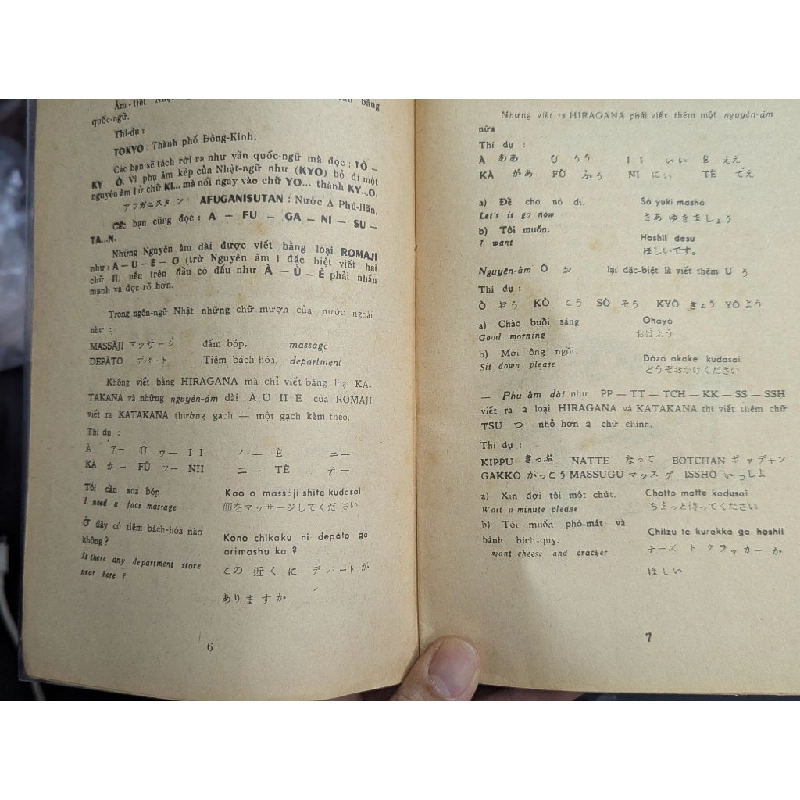 quốc-ngữ.
Thí-dụ :
TOKYO : Thành phố Đông-Kinh.
Các bạn sẽ tách rời ra như vần quốc-ngữ mà đọc : TÔ —
KY — Ô. Vì phụ âm kép của Nhật-ngữ như (KYO) bỏ đi một
nguyên âm I ở chữ KI... mà nối ngay vào chữ YO... thành KY...O.
アフガニスタン : AFUGANISUTAN : Nước A Phú-Hãn.
Các bạn cũng đọc : A — FU — GA — NI — SU —
TA...N.
Những Nguyên âm dài được viết bằng loại ROMAJI
như : A — U — E — O (trừ Nguyên âm I đặc biệt viết hai
chữ II, nên trên đầu có dấu như Â — Û — Ê phải nhấn
mạnh và đọc rõ hơn.
Trong ngôn-ngữ Nhật những chữ mượn của nước ngoài
như :
MASSÂJI マッサージ đấm bóp. massage
DEPÂTO デパート Tiệm bách hóa. department
Không viết bằng HIRAGANA mà chỉ viết bằng KA-
TAKANA và những nguyên-âm dài A U II E của ROMAJI
viết ra KATAKANA thường gạch — một gạch kèm theo.
Thí dụ :
Tôi cần soa bóp
I need a face massage
Kao o massâji shite kudasai
顔をマッサージしてください
Ở đây có tiệm bách-hóa nào
không ?
Is there any department store
near here ?
Kono chikaku ni depâto ga
arimashu ka ?
この近くに デパートが
ありますか
6
Nhưng viết ra HIRAGANA phải viết thêm một nguyên-âm
nữa
Thí dụ :
Â ああ Û うう I I いい Ê ええ
KÂ があ FÛ ふう NI にい TÊ でえ
a) Để cho nó đi.
Let's is go now
Sâ yuki masho
さあ ゆきましょう
b) Tôi muốn.
I want
Hoshii desu
ほしいです。
Nguyên-âm Ô lại đặc-biệt là viết thêm U う
Thí dụ :
Ô おう KÔ こう SÔ そう KYÔ きょう YÔ よう
a) Chào buổi sáng
Good morning
Ohayo
おはよう
b) Mời ông ngồi
Sit down please
Dôzo okake kudasai
どうぞおかけください
— Phụ âm dài như PP — TT — TCH — KK — SS — SSH
viết ra 2 loại HIRAGANA và KATAKANA thì viết thêm chữ
TSU つ nhỏ hơn 2 chữ chính.
Thí dụ :
KIPPU きっぷ NATTE なって BOTCHAN ボッチャン
GAKKO がっこう MASSUGU マッスグ ISSHO いっしょ
a) Xin đợi tôi một chút.
Wait a minute please
Chotto matte kudasai
ちょっと待ってください
b) Tôi muốn phó-mát và
bánh bích-quy.
want cheese and cracker
Chiizu to kurakka ga hoshii
チーズ ト クラッカー が
ほしい
7